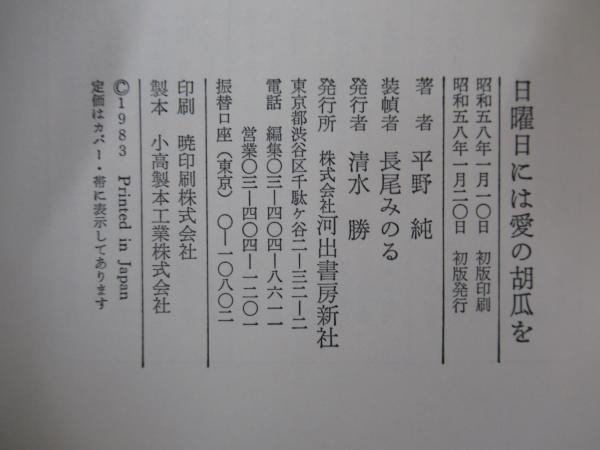 日曜日には愛の胡瓜を
昭和五八年一月一〇日　初版印刷
昭和五八年一月二〇日　初版発行
著　者　平野　純
装幀者　長尾みのる
発行者　清水　勝
発行所　株式会社河出書房新社
東京都渋谷区千駄ヶ谷二―三二―二
電話　編集〇三―四〇四―八六一一
営業〇三―四〇四―一二〇一
振替口座（東京）〇―一〇八〇二
印刷　暁印刷株式会社
製本　小高製本工業株式会社
©1983　Printed in Japan
定価はカバー・帯に表示してあります